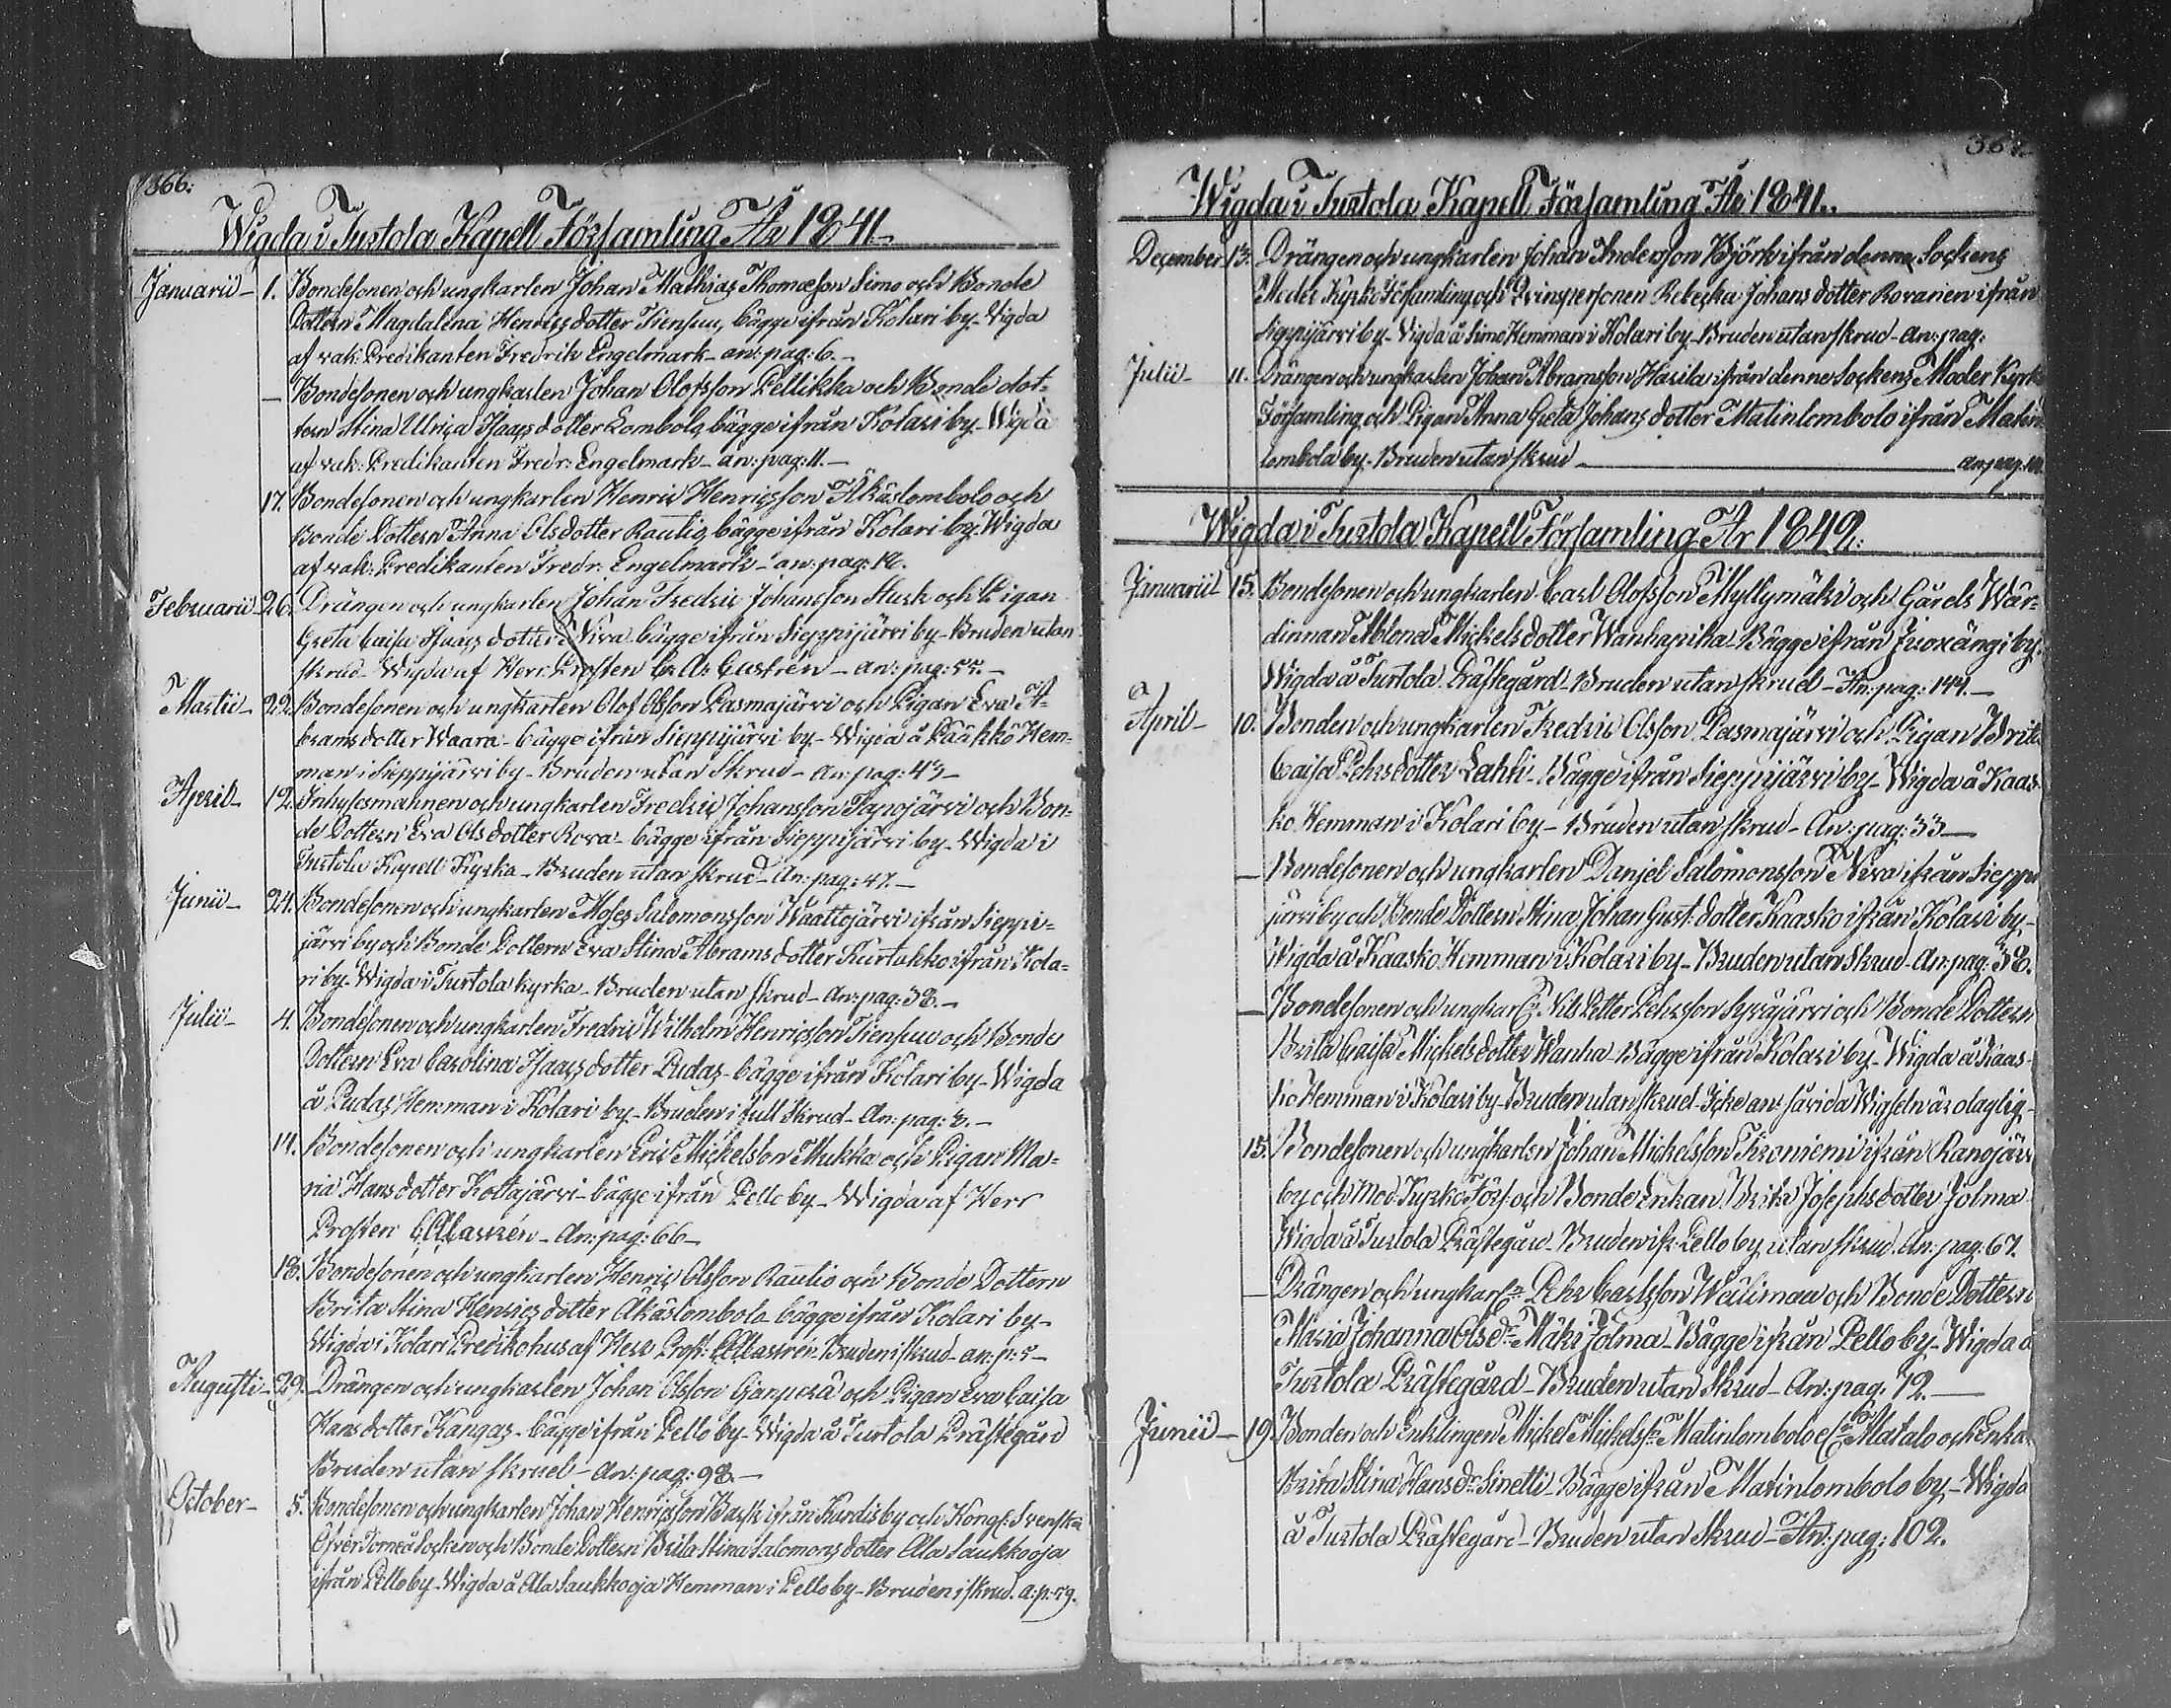 366.
Wigda i Turtola Kapell Församling År 1841
Januarii 1. Bondesonen och ungkarlen Johan Mathias Thomæson Simo och Bonde
Dottern Magdalena Henricsdotter Kiensuu, bägge ifrån Kolari by. Wigda
af vak: Predikanten Fredrik Engelmark - an: pag: 6.
— Bondesonen och ungkarlen Johan Olofsson Pellikka och Bonde dot-
tern Stina Ulrica Isaacsdotter Lombolo, bägge ifrån Kolari by. Wigda
af vak: Predikanten Fredr: Engelmark - an: pag: 11. —
17. Bondesonen och ungkarlen Henric Henricsson Äkäslombolo och
Bonde Dottern Anna Olsdotter Rautio, bägge ifrån Kolari by. Wigda
af vak: Predikanten Fredr: Engelmark - an: pag: 16.
Februarii 26. Drängen och ungkarlen Johan Fredric Johansson Stark och Pigan
Greta Caisa Isaacs dotter Niva bägge ifrån Sieppijärvi by - Bruden utan
skrud - Wigda af Herr Prosten C. A. Castrén - an: pag: 55. —
Martii - 22. Bondesonen och ungkarlen Olof Olsson Pasmajärvi och Pigan Eva A-
brams dotter Waara - bägge ifrån Sieppijärvi by - Wigda å Pääkkö Hem-
man i Sieppijärvi by - Bruden utan Skrud - An: pag: 43 —
April - 12. Inhysesmannen och ungkarlen Fredric Johansson Tapojärvi och Bon-
de Dottern Eva Ols dotter Rova - bägge ifrån Sieppijärvi by - Wigda i
Turtola Kapell Kyrka - Bruden utan skrud - An: pag: 47. —
Junii - 24. Bondesonen och ungkarlen Moses Salomonsson Waattojärvi ifrån Sieppi-
järvi by och Bonde Dottern Eva Stina Abrams dotter Kurtakko ifrån Kola-
ri by. Wigda i Turtola kyrka - Bruden utan skrud - An: pag: 38. —
Julii - 4. Bondesonen och ungkarlen Fredric Wilhelm Henricsson Kiensuu och Bonde
Dottern Eva Carolina Isaacs dotter Pudas - bägge ifrån Kolari by - Wigda
å Pudas Hemman i Kolari by - Bruden i full Skrud - An: pag: 2. —
11. Bondesonen och ungkarlen Eric Mickelsson Mukka och Pigan Ma-
ria Hans dotter Kottajärvi - bägge ifrån Pello by - Wigda af Herr
Prosten C A Castrén - An: pag: 66 —
18. Bondesonen och ungkarlen Henric Olsson Rautio och Bonde Dottern
Brita Stina Henrics dotter Äkäslombolo bägge ifrån Kolari by -
Wigda i Kolari Predikohus af Herr Prost: C A Castrén - Bruden i skrud - an: p: 5 —
Augusti - 29. Drängen och ungkarlen Johan Olsson och Pigan Eva Caisa
Hans dotter Kangas - bägge ifrån Pello by - Wigda å Turtola Prästegård
Bruden utan skrud - An: pag: 98. —
October - 5. Bondesonen och ungkarlen Johan Henricsson Bask ifrån Kardis by och Kongl: Svenska
Öfver Torneå Socken och Bonde Dottern Brita Stina Salomons dotter Ala Saukkooja
ifrån Pello by - Wigda å Ala Saukkooja Hemman i Pello by - Bruden i skrud. a: p: 59.
367.
Wigda i Turtola Kapell Församling År 1841.
December 13. Drängen och ungkarlen Johan Andersson Björk ifrån denna Sockens
Moder Kyrko Församling och Qvinspersonen Rebecka Johans dotter Rovanen ifrån
Sieppijärvi by - Wigda å Simo Hemman i Kolari by - Bruden utan skrud - An: pag:
Julii - 11. Drängen och ungkarlen Johan Abramsson Haxila ifrån denne Sockens Moder Kyrk
Församling och Pigan Anna Greta Johans dotter Matinlombolo ifrån Matin
lombolo by - Bruden utan skrud — an: pag:
Wigda i Turtola Kapell Församling År 1842.
Januarii 15. Bondesonen och ungkarlen Carl Olofsson Myllymäki och Gårds Wär-
dinnan Mickels dotter Wanhapiha - Bägge ifrån Juoxängi by.
Wigda å Turtola Prästegård - Bruden utan skrud - An: pag: 144. —
April - 10. Bonden och ungkarlen Fredric Olsson Pasmajärvi och Pigan Brita
Caisa Pehrs dotter Lahti - Bägge ifrån Sieppijärvi by - Wigda å Kaas-
ko Hemman i Kolari by - Bruden utan skrud - An: pag: 33 —
— Bondesonen och ungkarlen Danjel Salomonsson Niva ifrån Sieppi
järvi by och Bonde Dottern Stina Johan Gust: dotter Kaasko ifrån Kolari by -
Wigda å Kaasko Hemman i Kolari by - Bruden utan Skrud - An: pag: 38.
— Bondesonen och ungkarln Nils Petter Pehrsson Syväjärvi och Bonde Dottern
Brita Caisa Mickels dotter Wanha - Bägge ifrån Kolari by - Wigda å Kaas-
ko Hemman i Kolari by - Bruden utan skrud - Icke an: savida Wigseln är olaglig -
15. Bondesonen och ungkarlen Johan Mickelsson Kroniemi ifrån Ranojärv
by och Mod: Kyrko Förs: och Bonde Enkan Brita Josephs dotter Jolma
Wigda å Turtola Prästegård - Bruden ifr: Pello by utan skrud. An: pag: 67.
— Drängen och ungkarln Pehr Carlsson Wälimaa och Bonde Dottern
Maria Johanna Ols dr Mäki Jolma - Bägge ifrån Pello by - Wigda å
Turtola Prästegård - Bruden utan Skrud - An: pag: 72. —
Junii - 19. Bonden och Enklingen Mickel Mickelsson Matinlombolo Matalo och Enkan
Brita Stina Hans dr Sinetti - Bägge ifrån Matinlombolo by - Wigda
å Turtola Prästegård - Bruden utan Skrud - An: pag: 102.